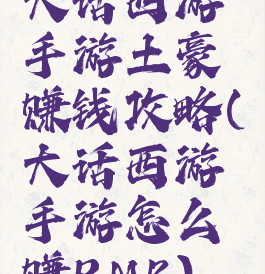 大话西游
手游土豪
赚钱攻略(
大话西游
手游怎么
赚RMB)